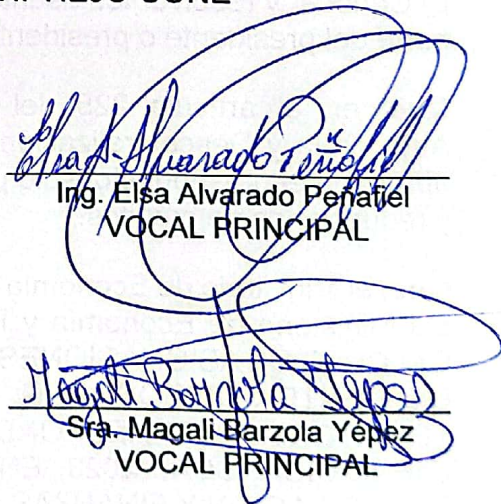 Elsa A. Alvarado Peñafiel
Ing. Elsa Alvarado Peñafiel
VOCAL PRINCIPAL
Magali Barzola Yepez
Sra. Magali Barzola Yépez
VOCAL PRINCIPAL